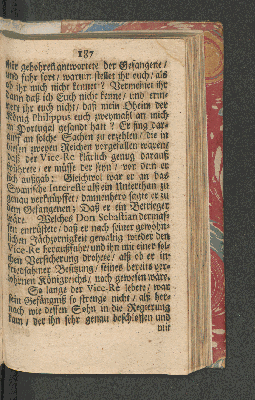 187
mir gehohren antwortete der Gefangene /
und fuhr fort / warum stellet ihr euch / als
ob ihr mich nicht kennet? Vermeinet ihr
dann daß ich Euch nicht kenne / und erin-
nert ihr euch nicht / daß mein Oheim der
König Philippus euch zweymahl an mich
in Portugal gesandt hatt? Er fing dar-
auff an solche Sachen zu erzehlen / die in
diesen zweyen Reichen vorgefallen waren /
daß der Vice-Re klärlich genug daraus
spührete / er müste der seyn / vor dem er
sich ausgab: Gleichwol war er an das
Spanische Interesse als ein Unterthan zu
genau verknüpffet / dannenhero sagte er zu
dem Gefangenen; Daß er ein Betrieger
wäre. Welches Don Sebastian dermass-
sen entrüstete / daß er nach seiner gewohn-
lichen Jachzornigkeit gewaltig wieder den
Vice-Re herausfuhr / und ihn mit einer sol-
chen Versicherung drohete / als ob er in
Friedsahmer Besitzung / seines bereits ver-
lohrnen Königreichs / noch gewesen wäre.
So lange der Vice-Re lebete / war
sein Gefängnüß so strenge nicht / als her-
nach wie dessen Sohn in die Regierung
kam / der ihn sehr genau beschlossen und
mit